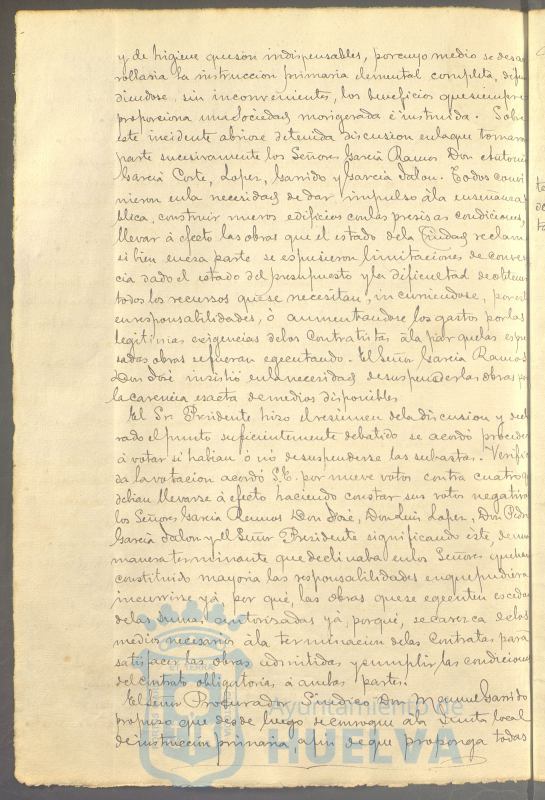 y de higiene que son indispensables, por cuyo medio se desar
rollaria la instruccion primaria elemental completa, difun
diendose, sin inconvenientes, los beneficios que siempre
proporciona una sociedad morigerada é instruida. Sobre
este incidente abriose detenida discusion en la que tomaron
parte sucesivamente los Señores Garcia Ramos Don Antonio
Garcia Corte, Lopez, Garrido y Garcia Jalon. Todos convi
nieron en la necesidad de dar impulso á la enseñanza
blica, construir nuevos edificios con las precisas condiciones,
llevar á efecto las obras que el estado de la Ciudad reclama
si bien en esa parte se expusieron limitaciones de conven
cia dado el estado del presupuesto y la dificultad de obtener
todos los recursos que se necesitan, incurriendose, por
en responsabilidades, ó aumentandose los gastos por las
legitimas exigencias de los Contratistas á la par que las espre
sadas obras se fueran egecutando. El Señor Garcia Ramos
Don José insistió en la necesidad de suspender las obras por
la carencia esacta de medios disponibles
El Sr. Presidente hizo el resumen de la discusion y decla
rado el punto suficientemente debatido se acordó proceder
á votar si habian ó nó de suspenderse las subastas. Verifica
da la votacion acordó S.E. por nueve votos contra cuatro que
debian llevarse á efecto haciendo constar sus votos negativos
los Señores Garcia Ramos Don José, Don Luis Lopez, Don Pedro
Garcia Jalon y el Señor Presidente significando éste, de una
manera terminante que declinaba en los Señores que han
constituido mayoria las responsabilidades en que pudiera
incurrirse yá, por qué, las obras que se egecuten escedan
de las sumas autorizadas yá, porqué, se carezca de los
medios necesarios á la terminacion de las Contratas para
satisfacer las obras admitidas y cumplir las condiciones
del contrato obligatorias á ambas partes.
El Señor Procurador Sindico Don Manuel Garrido
propuso que desde luego se convoque á la Junta local
de instruccion primaria a fin de que proponga todas
Ayuntamiento de
HUELVA